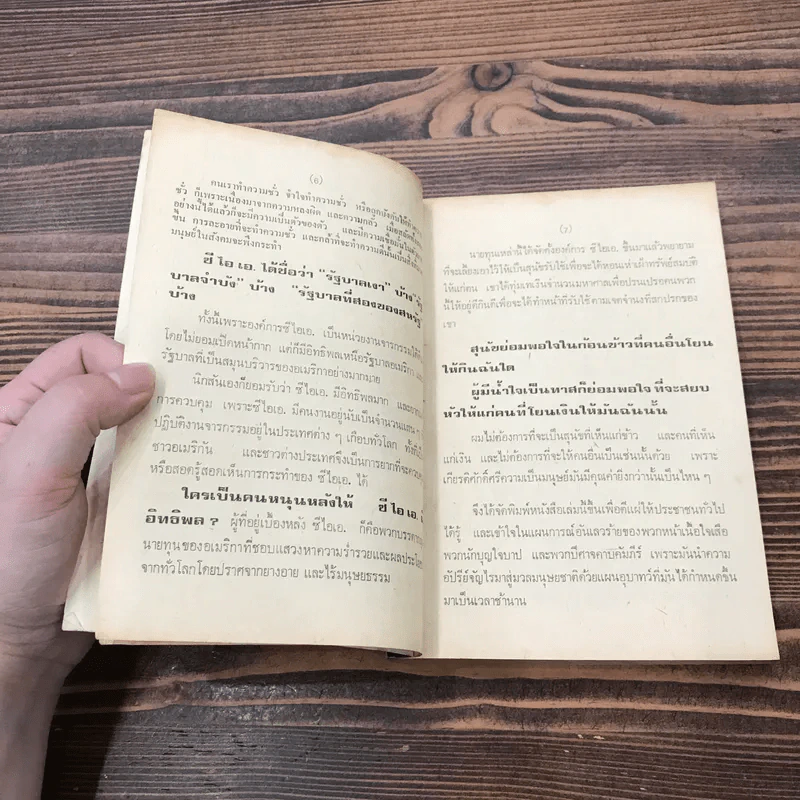 (6)
คนเราทำความชั่ว จำใจทำความชั่ว หรือถูกบังคับให้ทำความ
ชั่ว ก็เพราะเนื่องมาจากความหลงผิด และความกลัว เมื่อ
อย่างนี้ได้แล้วก็จะมีความเป็นตัวของตัว และมีความเชื่อมั่นในตัว
ขึ้น การละอายที่จะทำความชั่ว และกล้าที่จะทำความดีนั้นเป็น
มนุษย์ในสังคมจะพึงกระทำ
ซี ไอ เอ. ได้ชื่อว่า "รัฐบาลเงา" บ้าง
บาลจำบัง" บ้าง "รัฐบาลที่สองของสหรัฐ"
บ้าง
ทั้งนี้เพราะองค์การซีไอเอ. เป็นหน่วยงานจารกรรมใต้ดิน
โดยไม่ยอมเปิดหน้ากาก แต่ก็มีอิทธิพลเหนือรัฐบาลอเมริกา และ
รัฐบาลที่เป็นสมุนบริวารของอเมริกาอย่างมากมาย
นิกสันเองก็ยอมรับว่า ซีไอเอ. มีอิทธิพลมาก และยากแก่
การควบคุม เพราะซีไอเอ. มีคนงานอยู่นับเป็นจำนวนแสน ๆ
ปฏิบัติงานจารกรรมอยู่ในประเทศต่าง ๆ เกือบทั่วโลก ทั้งที่เป็น
ชาวอเมริกัน และชาวต่างประเทศจึงเป็นการยากที่จะควบคุม
หรือสอดรู้สอดเห็นการกระทำของ ซีไอเอ. ได้
ใครเป็นคนหนุนหลังให้ ซี ไอ เอ.
อิทธิพล ? ผู้ที่อยู่เบื้องหลัง ซีไอเอ. ก็คือพวกบรรดา
นายทุนของอเมริกาที่ชอบแสวงหาความร่ำรวยและผลประโยชน์
จากทั่วโลกโดยปราศจากยางอาย และไร้มนุษยธรรม
(7)
นายทุนเหล่านี้ได้จัดตั้งองค์การ ซีไอเอ. ขึ้นมาแล้วพยายาม
ที่จะเลี้ยงเอาไว้ให้เป็นสุนัขรับใช้เพื่อจะได้หอนเห่าเฝ้าทรัพย์สมบัติ
ให้แก่ตน เขาได้ทุ่มเทเงินจำนวนมหาศาลเพื่อปรนเปรอคนพวก
นี้ให้อยู่ดีกินดีเพื่อจะได้ทำหน้าที่รับใช้ ตามเจตจำนงที่สกปรกของ
เขา
สุนัขย่อมพอใจในก้อนข้าวที่คนอื่นโยน
ให้กินฉันใด
ผู้มีน้ำใจเป็นทาสก็ย่อมพอใจ ที่จะสยบ
หัวให้แก่คนที่โยนเงินให้มันฉันนั้น
ผมไม่ต้องการที่จะเป็นสุนัขที่เห็นแก่ข้าว และคนที่เห็น
แก่เงิน และไม่ต้องการที่จะให้คนอื่นเป็นเช่นนั้นด้วย เพราะ
เกียรติศักดิ์ศรีความเป็นมนุษย์มันมีคุณค่ายิ่งกว่านั้นเป็นไหน ๆ
จึงได้จัดพิมพ์หนังสือเล่มนี้ขึ้นเพื่อตีแผ่ให้ประชาชนทั่วไป
ได้รู้ และเข้าใจในแผนการณ์อันเลวร้ายของพวกหน้าเนื้อใจเสือ
พวกนักบุญใจบาป และพวกปีศาจคาบคัมภีร์ เพราะมันนำความ
อัปรีย์จัญไรมาสู่มวลมนุษยชาติด้วยแผนอุบาทว์ที่มันได้กำหนดขึ้น
มาเป็นเวลาช้านาน